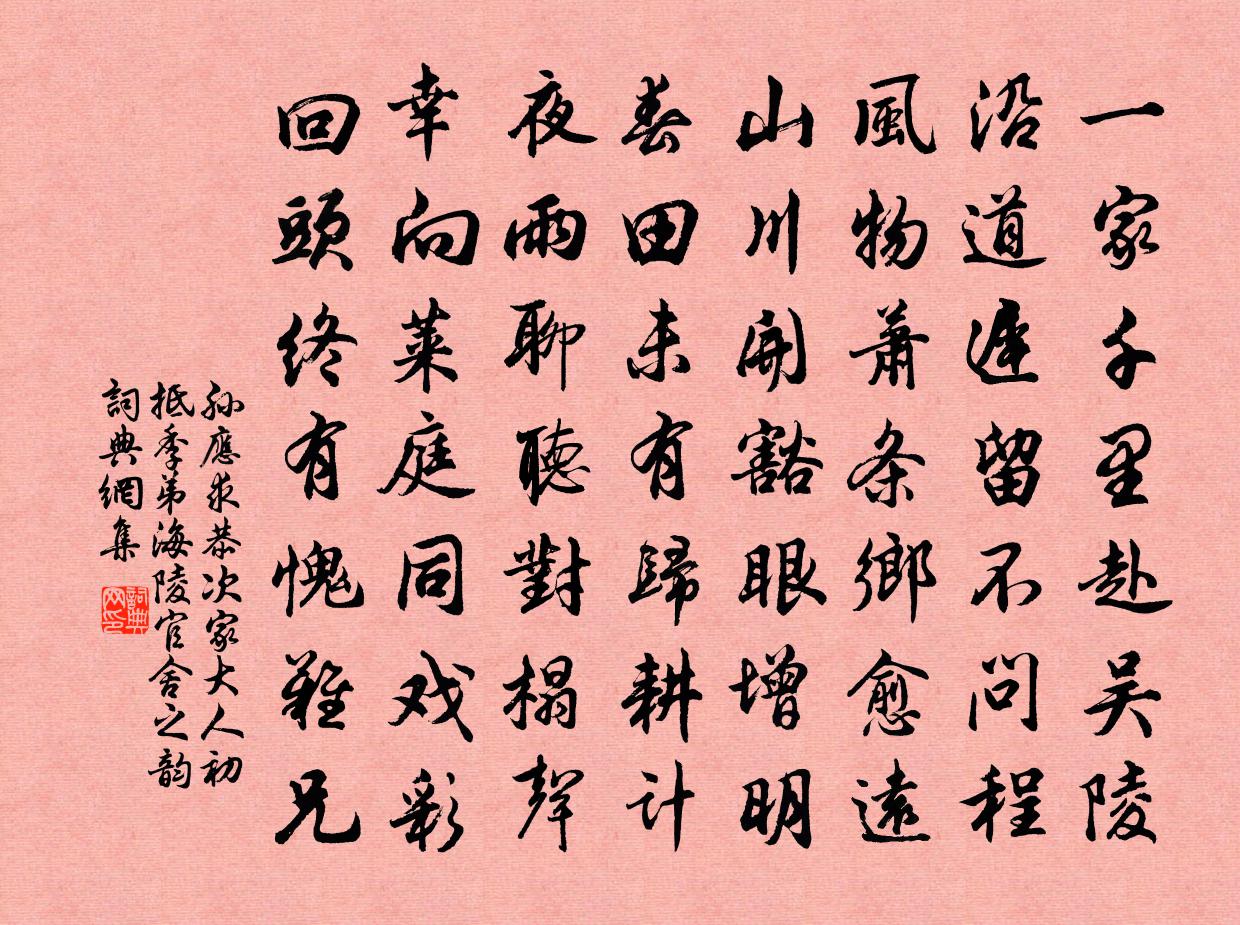 一家千里赴吴陵
沿道遲留不問程
風物蕭条鄉愈遠
山川開豁眼增明
春田未有歸耕計
夜雨聊聽對榻聲
幸向萊庭同戏彩
回頭終有愧難兄
孙應求恭次家大人初
抵季弟海陵官舍之韵
詞典網集
詞典网印